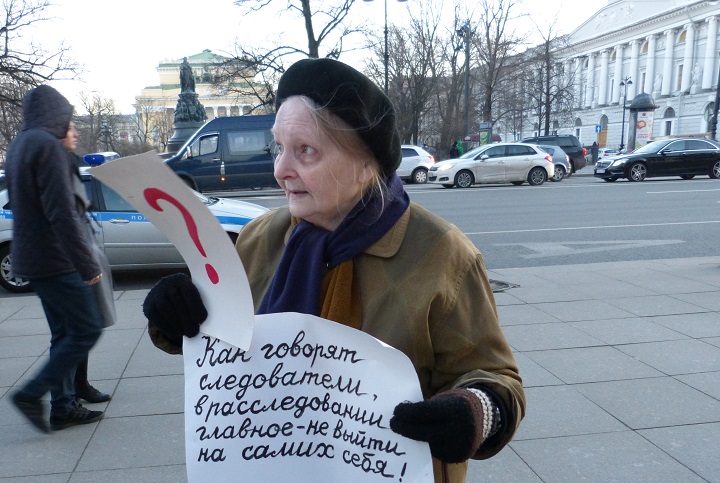 ?
Как говорят
следователи,
в расследовании
главное - не выйти
на самих себя!